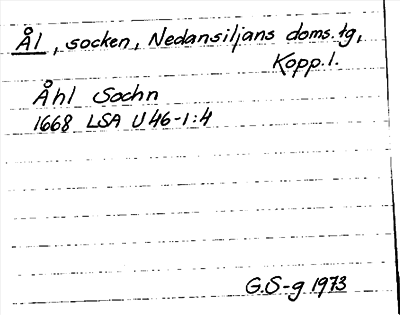 Ål, socken, Nedansiljans doms.tg,
Kopp.l.
Åhl Sochn
1668 LSA U46-1:4
G.S-g 1973